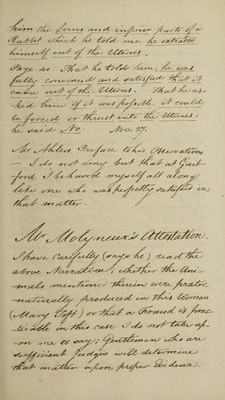 him the Loins and inferior parts of a
Rabbet which he told me he extracted
himself out of the Uterus.
Page 40. That he told him, he was
fully convinced and satisfied that it
came out of the Uterus. That he as-
ked him if it was possible it could
be forced or thrust into the Uterus:
he said No. Nov. 27.
Mr Ahlers Preface to his Observations
— I do not deny but that at Guil-
ford I behaved myself all along
like one who was perfectly satisfied in
that matter.
Mr Molyneux's Attestation.
I have carefully (says he) read the
above Narrative, whether the Ani-
mals mentiond therein were præter-
naturally produced in this Woman
(Mary Toft) or that a Fraud is prac-
ticable in this case I do not take up-
on me to say; Gentlemen who are
sufficient Judges will determine
that matter upon proper Evidence.